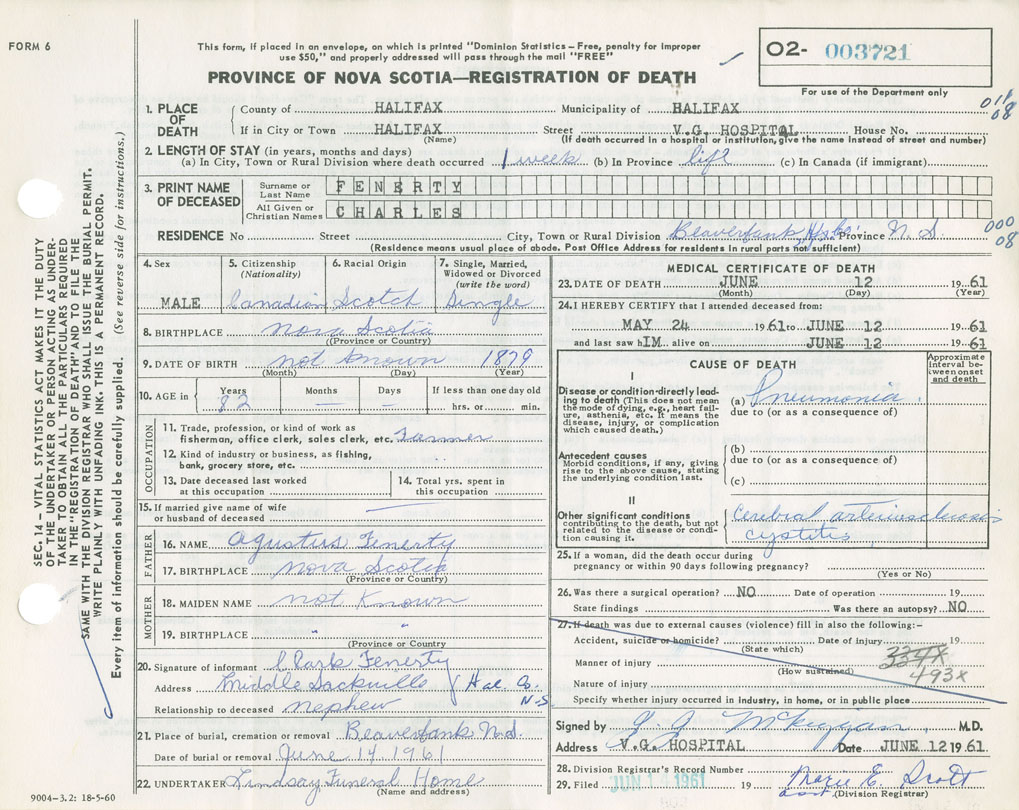 FORM 6
This form, if placed in an envelope, on which is printed "Dominion Statistics – Free, penalty for improper
use $50," and properly addressed will pass through the mail "FREE"
PROVINCE OF NOVA SCOTIA—REGISTRATION OF DEATH
O2- 003721
For use of the Department only
011
08
1. PLACE OF DEATH County of HALIFAX Municipality of HALIFAX
If in City or Town HALIFAX Street V.G. HOSPITAL House No.
(Name) (If death occurred in a hospital or institution, give the name instead of street and number)
2. LENGTH OF STAY (in years, months and days)
(a) In City, Town or Rural Division where death occurred 1 week (b) In Province life (c) In Canada (if immigrant)
3. PRINT NAME OF DECEASED Surname or Last Name FENERTY
All Given or Christian Names CHARLES
000
08
RESIDENCE No Street City, Town or Rural Division Beaverbank, Hfx. Province N.S.
(Residence means usual place of abode. Post Office Address for residents in rural parts not sufficient)
4. Sex MALE
5. Citizenship (Nationality) Canadian
6. Racial Origin Scotch
7. Single, Married, Widowed or Divorced (write the word) Single
8. BIRTHPLACE Nova Scotia
(Province or Country)
9. DATE OF BIRTH not known 1879
(Month) (Day) (Year)
10. AGE in Years 82 Months — Days — If less than one day old
hrs. or min.
OCCUPATION
11. Trade, profession, or kind of work as
fisherman, office clerk, sales clerk, etc. Farmer
12. Kind of industry or business, as fishing,
bank, grocery store, etc.
13. Date deceased last worked
at this occupation
14. Total yrs. spent in
this occupation
15. If married give name of wife
or husband of deceased
FATHER
16. NAME Agustus Fenerty
17. BIRTHPLACE Nova Scotia
(Province or Country)
MOTHER
18. MAIDEN NAME not Known
19. BIRTHPLACE " "
(Province or Country)
20. Signature of informant C Park Fenerty
Address Middle Sackville Hal. Co.
N.S
Relationship to deceased nephew
21. Place of burial, cremation or removal Beaverbank N.S.
Date of burial or removal June 14, 1961
22. UNDERTAKER Lindsay Funeral Home
(Name and address)
9004-3.2: 18-5-60
MEDICAL CERTIFICATE OF DEATH
23. DATE OF DEATH JUNE 12 1961
(Month) (Day) (Year)
24. I HEREBY CERTIFY that I attended deceased from:
MAY 24 1961 to JUNE 12 1961
and last saw hIM alive on JUNE 12 1961
CAUSE OF DEATH
Approximate interval between onset and death
I
Disease or condition directly leading to death (This does not mean
the mode of dying, e.g., heart failure, asthenia, etc. It means the
disease, injury, or complication
which caused death.)
(a) Pneumonia
due to (or as a consequence of)
Antecedent causes
Morbid conditions, if any, giving
rise to the above cause, stating
the underlying condition last.
(b)
due to (or as a consequence of)
(c)
II
Other significant conditions
contributing to the death, but not
related to the disease or condition causing it.
Cerebral arteriosclerosis
cystitis
25. If a woman, did the death occur during
pregnancy or within 90 days following pregnancy?
(Yes or No)
26. Was there a surgical operation? NO Date of operation 19
State findings Was there an autopsy? NO
27. If death was due to external causes (violence) fill in also the following:-
Accident, suicide or homicide? Date of injury 19
(State which)
334X
Manner of injury
(How sustained)
493x
Nature of injury
Specify whether injury occurred in industry, in home, or in public place
Signed by M.D.
Address V.G. HOSPITAL Date JUNE 12 1961.
28. Division Registrar's Record Number
29. Filed JUN 1961 19 Marie E. Scott
asst. (Division Registrar)
SEC. 14 – VITAL STATISTICS ACT MAKES IT THE DUTY
OF THE UNDERTAKER OR PERSON ACTING AS UNDERTAKER TO OBTAIN ALL THE PARTICULARS REQUIRED
IN THE "REGISTRATION OF DEATH" AND TO FILE THE
SAME WITH THE DIVISION REGISTRAR WHO SHALL ISSUE THE BURIAL PERMIT.
WRITE PLAINLY WITH UNFADING INK. THIS IS A PERMANENT RECORD.
Every item of information should be carefully supplied. (See reverse side for instructions.)